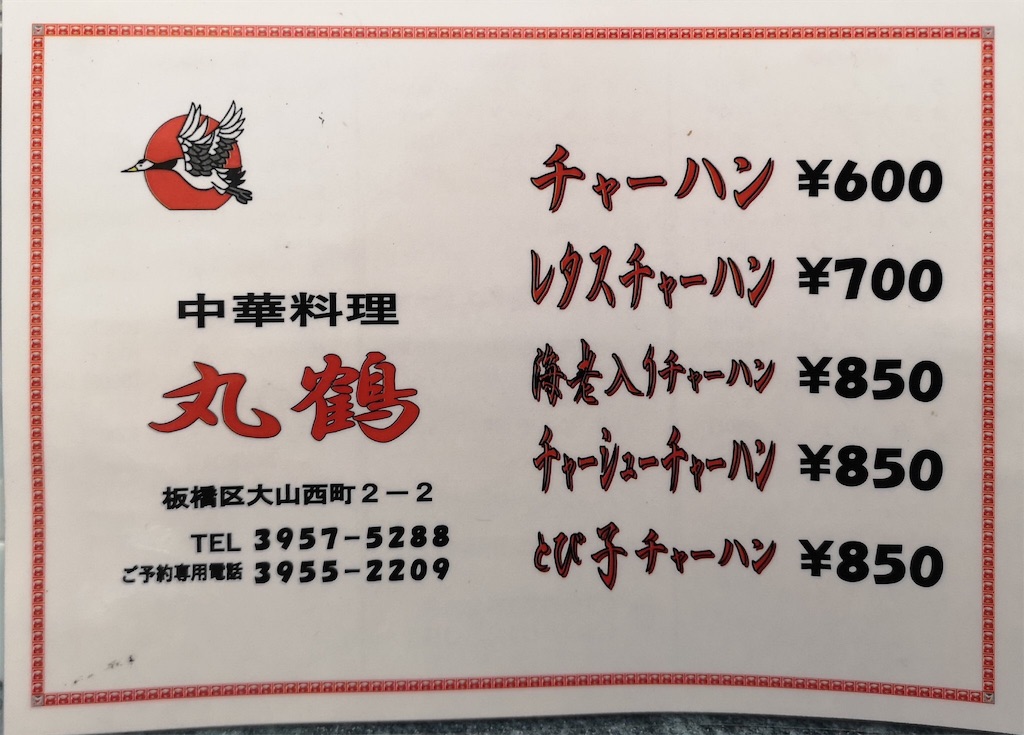 中華料理
丸鶴
板橋区大山西町2-2
TEL 3957-5288
ご予約専用電話 3955-2209
チャーハン ¥600
レタスチャーハン ¥700
海老入りチャーハン ¥850
チャーシューチャーハン ¥850
とび子チャーハン ¥850